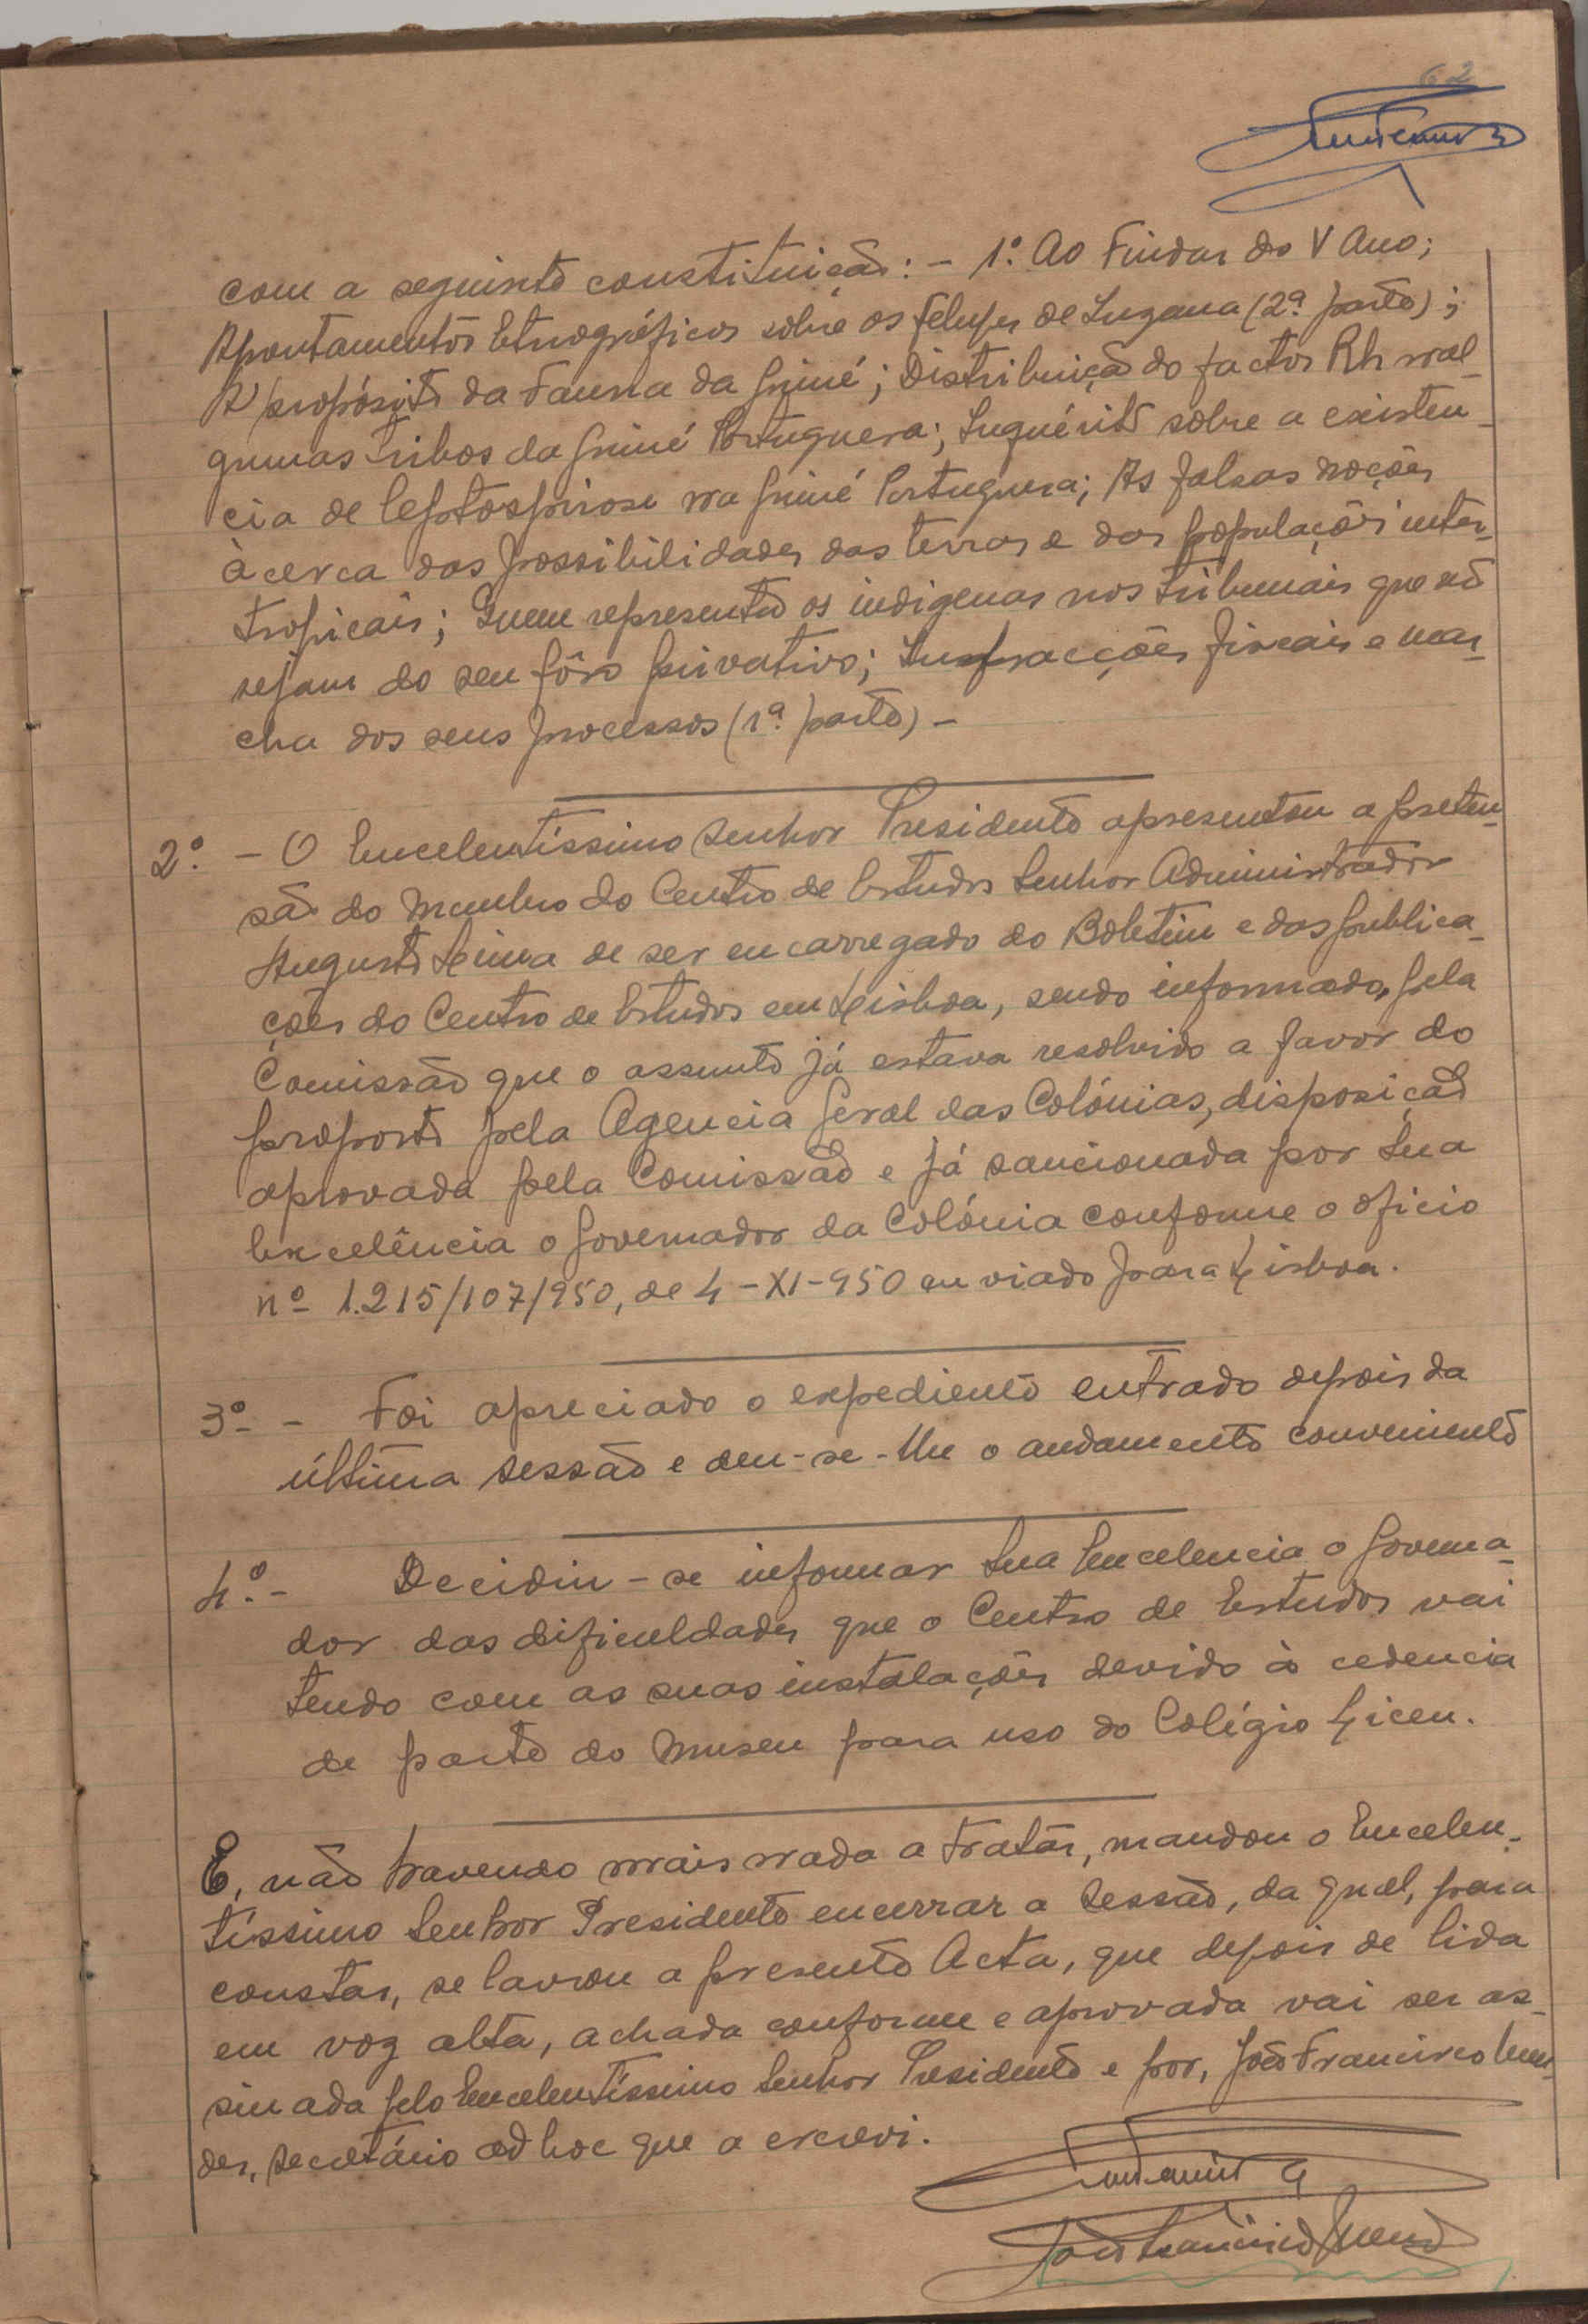 62
com a seguinte constituição: - 1º. Ao Findar do V Ano;
Apontamentos Etnográficos sôbre os Felupes de Suzana (2ª. parte);
A propósito da Fauna da Guiné; Distribuição do factor Rh nal-
gumas tribos da Guiné Portuguesa; Inquérito sobre a existen-
cia de leptospirose na Guiné Portuguesa; As falsas noções
àcerca das possibilidades das terras e das populações inter-
tropicais; Quem representa os indigenas nos tribunais que não
sejam do seu fôro privativo; Infracções fiscais e mar-
cha dos seus processos (1ª. parte) -
2º. - O Excelentíssimo Senhor Presidente apresentou a preten-
são do Membro do Centro de Estudos Senhor Administrador
Augusto Lima de ser encarregado do Boletim e das publica-
ções do Centro de Estudos em Lisboa, sendo informado, pela
Comissão que o assunto já estava resolvido a favor do
proposto pela Agencia Geral das Colónias, disposição
aprovada pela Comissão e já sancionada por Sua
Excelência o Governador da Colónia conforme o oficio
nº 1.215/107/950, de 4-XI-950 enviado para Lisboa.
3º - Foi apreciado o expediente entrado depois da
última sessão e deu-se-lhe o andamento conveniente
4º. - Decidiu-se informar Sua Excelencia o Governa-
dor das dificuldades que o Centro de Estudos vai
tendo com as suas instalações devido à cedencia
de parte do Museu para uso do Colégio Liceu.
E, não havendo mais nada a tratar, mandou o Excelen-
tíssimo Senhor Presidente encerrar a Sessão, da qual, para
constar, se lavrou a presente Acta, que depois de lida
em voz alta, achada conforme e aprovada vai ser as-
sinada pelo Excelentíssimo Senhor Presidente e por, João Francisco Men-
des, secretário ad hoc que a escrevi.
João Francisco Mendes